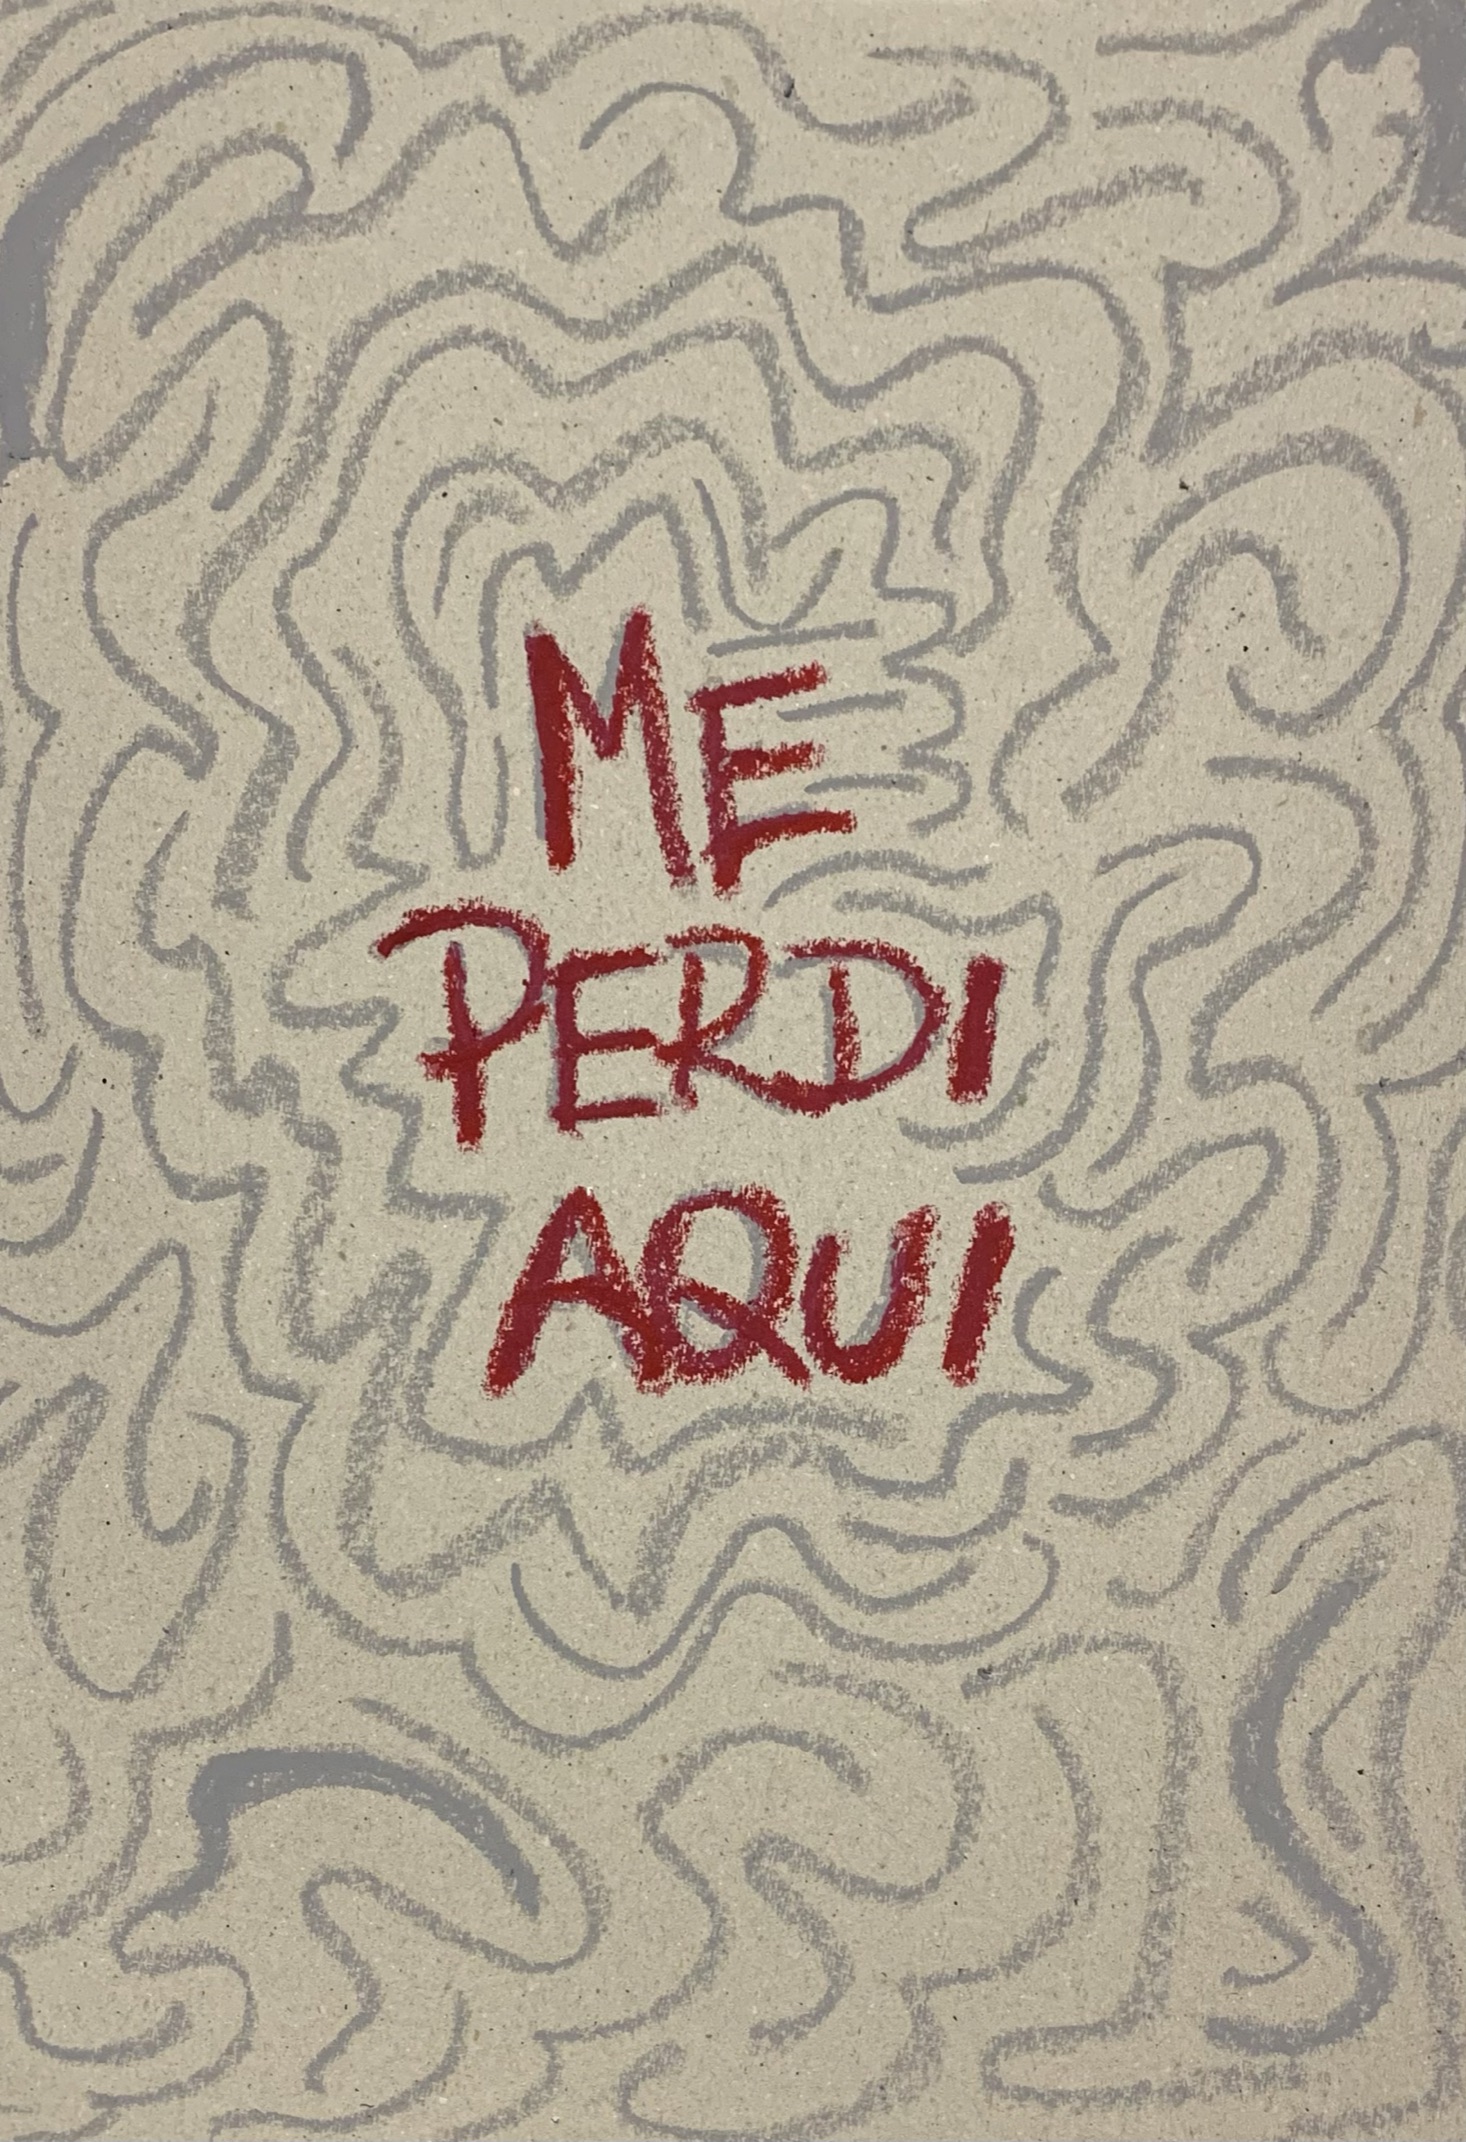 ME
PERDI
AQUI